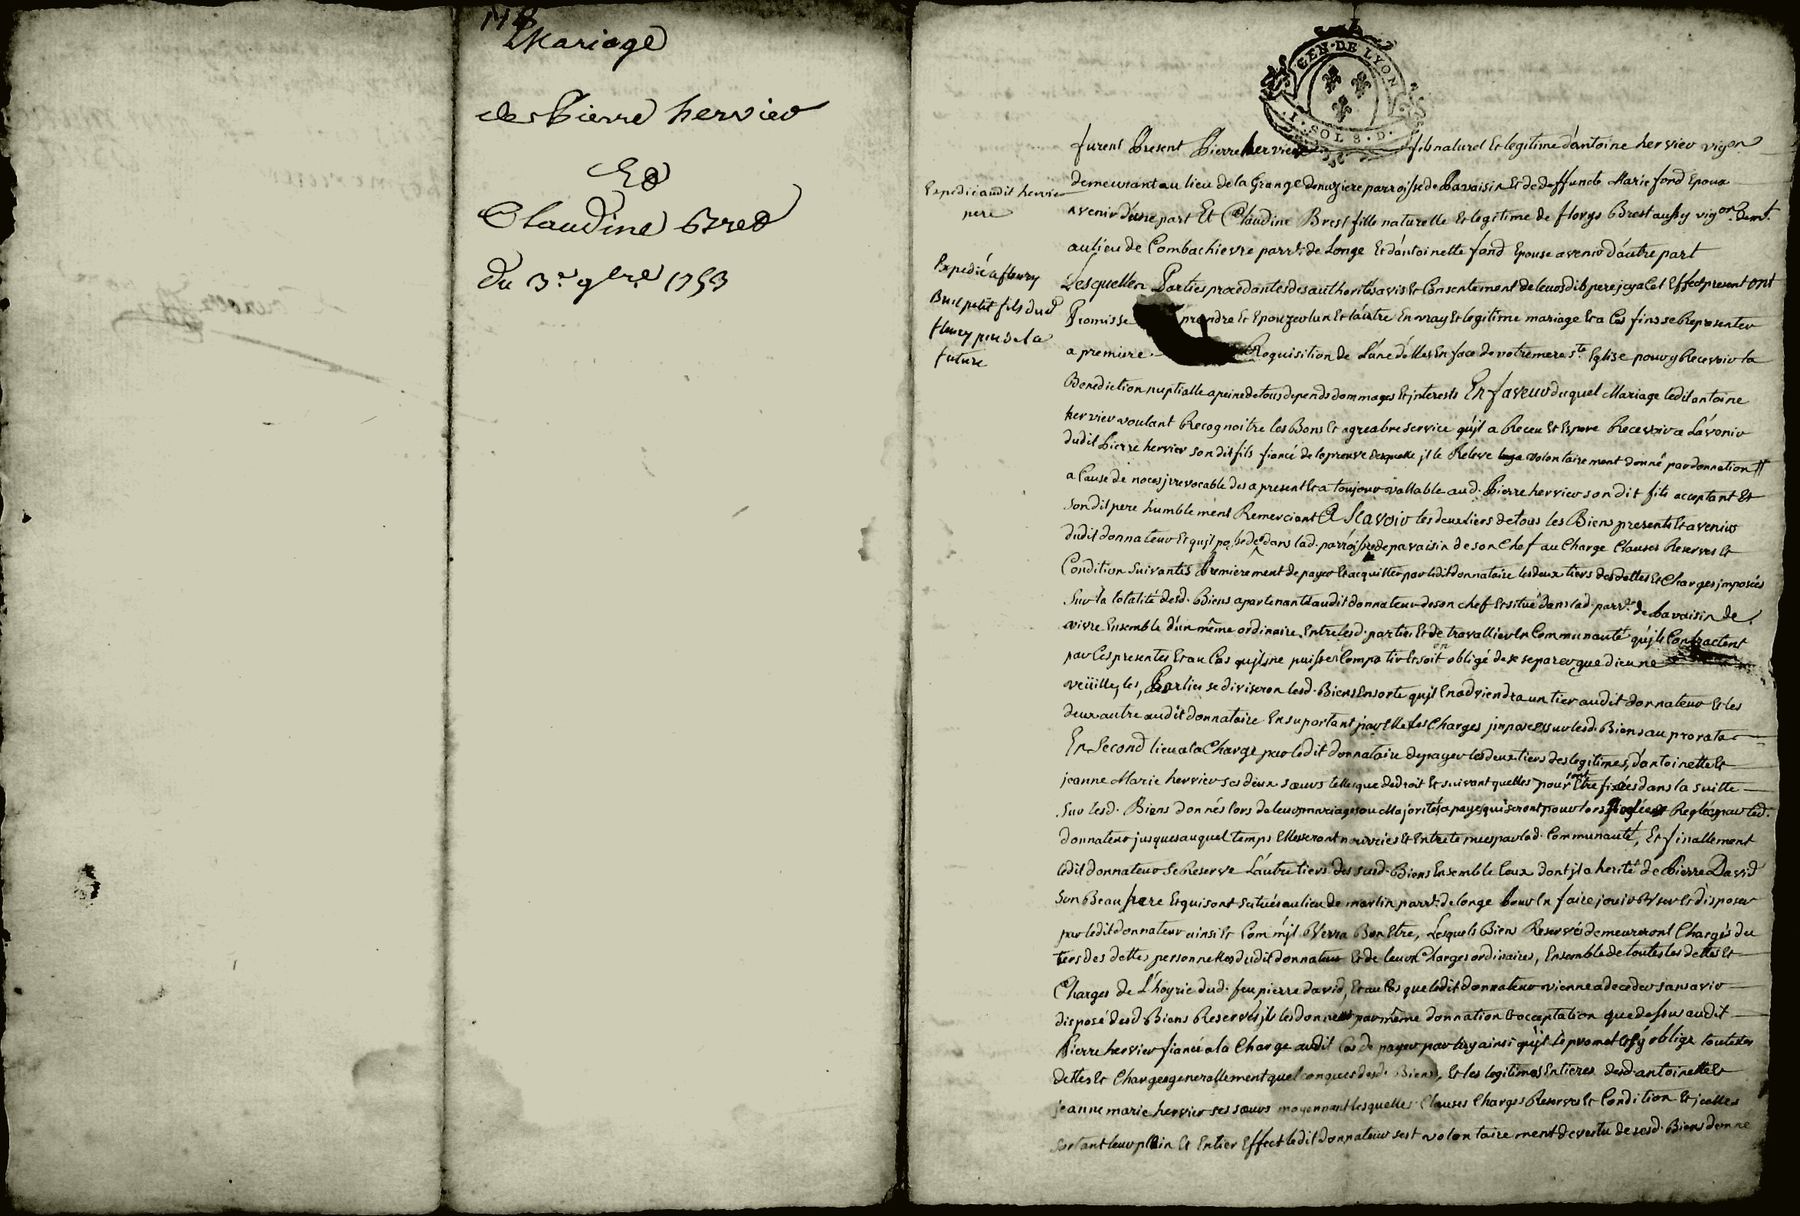 Mariage
de Pierre hervier
Et
Claudine Brest
du 3.e 9bre 1753
GEN·DE LYON
I·SOL 8·D·
Expedié audit hervier
pere
Expedié a fleury
Brest petit fils dud
fleury pere de la
future
furent Present Pierre hervier fils naturel Et legitime d'antoine hervier vigon
demeurant au lieu de la Grange parroisse de Pavaisin Et de deffuncte Marie fond Epoux
avenir d'une part Et Claudine Brest fille naturelle Et legitime de florys Brest aussy vigon demt
au lieu de Combachievre parr. de Longe Et d'antoinette fond Epouse avenir d'autre part
Lesquelles Parties procedantes des authorités avis Et Consentement de leursdits pere jcy a Cet Effect present ont
Promis se prendre Et Epouzer lun Et l'autre En vray Et legitime mariage Et a Ces fins se Representer
a premiere Requisition de L'une d'elles En face de notre mere ste Eglise pour y Recevoir la
Benediction nuptialle a peine de tous depends dommages Et jnterests En faveur duquel Mariage ledit antoine
hervier voulant Recognoitre les Bons Et agreabre service qu'jl a Receu Et Espere Recevoir a L'avenir
dudit Pierre hervier son dit fils fiancé de la preuve desquelle jl le Releve volontairement donné par donnation
a Cause de noces jrrevocable des a present Et a toujour vallable aud. Pierre hervier son dit fils acceptant Et
son dit pere humblement Remerciant A Scavoir les deux tiers de tous les Biens presents Et avenir
dudit donnateur Et qu'jl possede dans lad. parroisse de pavaisin de son Chef au Charge Clauses Reserves Et
Condition suivantes Premierement de payer Et acquitter par ledit donnataire les deux tiers des dettes Et Charges jmposées
sur la totalité desd. Biens apartenants audit donnateur de son chef Et situé dans lad. parr. de Pavaisin de
vivre Ensemble d'un même ordinaire Entre lesd. parties Et de travallier En Communauté qu'jls Contractent
par Ces presentes Et au Cas qu'jls ne puisse Compatir Et soit obligé de se separer que dieu ne
veüille, les Parties se diviseron lesd. Biens En sorte qu'jl En adviendra un tier audit donnateur Et les
deux autre audit donnataire En suportant par Elle les Charges jmposées sur lesd. Biens au prorata
En Second lieu a la Charge par ledit donnataire de payer les deux tiers des legitimes d'antoinette Et
jeanne Marie hervier ses deux sœurs telles que de droit Et suivant quelles pouront Etre fixées dans la suitte
sur lesd. Biens donnés lors de leurs mariages ou Majorité a payes qui seront pour lors Reglées par led.
donnateur jusques auquel temps Elles seront nourries Et Entretenues par lad. Communauté, Et finallement
ledit donnateur se Reserve L'autre tiers des susd. Biens Ensemble Ceux dont jl a herité de Pierre David
son Beau frere Et qui sont situés au lieu de marlin parr. de longe Pour En faire jouir User Et disposer
par ledit donnateur ainsi Et Comm'jl Verra Bon Etre, Lesquels Biens Reservés demeureront Chargés du
tiers des dettes personnelles dudit donnateur Et de leurs Charges ordinaires, Ensemble de toutes les dettes Et
Charges de L'hoyrie dud. feu pierre david, Et au Cas que ledit donnateur vienne a deceder sans avoir
disposé desd Biens Reservés jls les donne par même donnation Et acceptation que dessus audit
Pierre hervier fiancé a la Charge audit Cas de payer par luy ainsi qu'jl le promet Et s'y oblige toutes les
dettes Et Charges generallement quelconques desd. Biens, Et les legitimes Entieres desd antoinette Et
jeanne marie hervier ses sœurs moyennant lesquelles Clauses Charges Reserves Et Condition Et jcelles
sortant leur plein Et Entier Effect ledit donnateur sest volontairement devestu de sesd. Biens donne